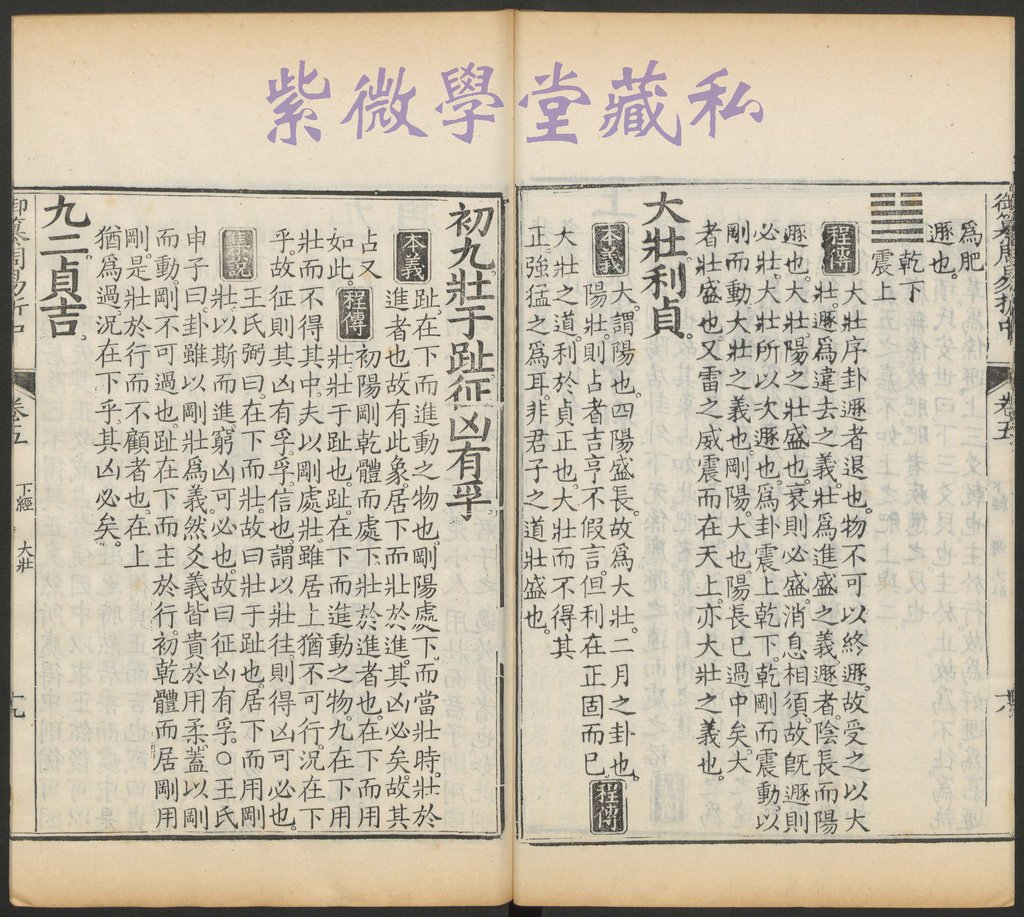 紫微學堂藏私
御纂周易折中
卷五
為肥
遯也
乾下
震上
程傳
大壯序卦遯者退也物不可以終遯故受之以大
壯遯為違去之義壯為進盛之義遯者陰長而陽
遯也大壯陽之壯盛也衰則必盛消息相須故旣遯則
必壯大壯所以次遯也為卦震上乾下乾剛而震動以
剛而動大壯之義也剛陽大也陽長巳過中矣大
者壯盛也又雷之威震而在天上亦大壯之義也
大壯利貞
本義
大謂陽也四陽盛長故為大壯二月之卦也
陽壯則占者吉亨不假言但利在正固而巳
程傳
大壯之道利於貞正也大壯而不得其
正強猛之為耳非君子之道壯盛也
初九壯于趾征凶有孚
本義
趾在下而進動之物也剛陽處下而當壯時壯於
進者也故有此象居下而壯於進其凶必矣故其
占又
如此
程傳
初陽剛乾體而處下壯於進者也在下而用
壯壯于趾也趾在下而進動之物九在下用
壯而不得其中夫以剛處壯雖居上猶不可行況在下
乎故征則其凶有孚孚信也謂以壯往則得凶可必也
集說
王氏弼曰在下而壯故曰壯于趾也居下而用剛
壯以斯而進窮凶可必也故曰征凶有孚○王氏
申子曰卦雖以剛壯為義然爻義皆貴於用柔蓋以剛
而動剛不可過也趾在下而主於行初乾體而居剛用
剛是壯於行而不顧者也在上
猶為過況在下乎其凶必矣
九二貞吉
御纂周易折中
卷五
下經
大壯
十九